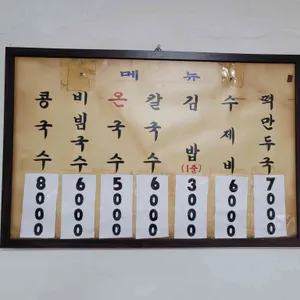 메뉴
콩국수 8000
비빔국수 6000
온국수 5000
칼국수 6000
김밥(1줄) 3000
수제비 6000
떡만두국 7000